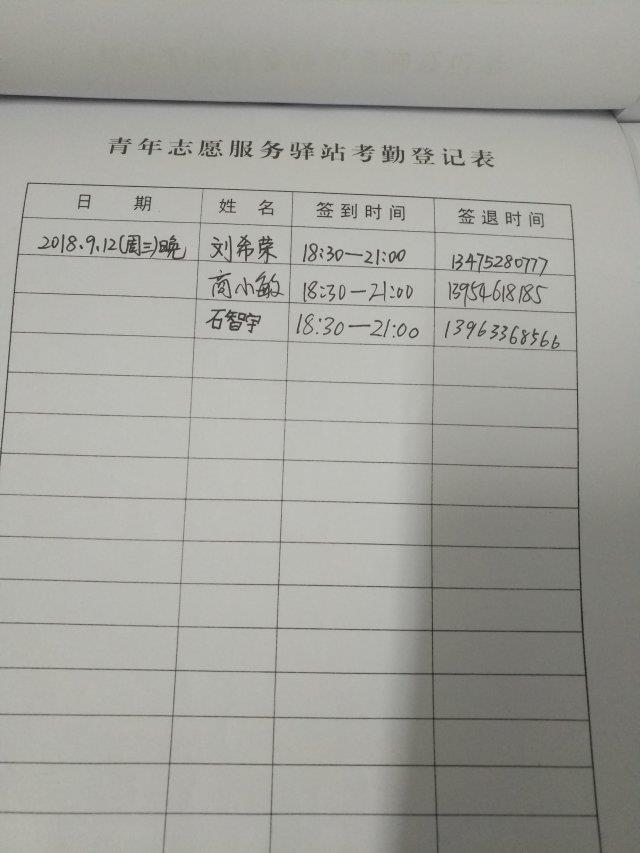 青年志愿服务驿站考勤登记表
日 期 姓 名 签到时间 签退时间
2018.9.12(周三)晚 刘希荣 18:30—21:00 13475280777
商小敏 18:30—21:00 13954618185
石智宇 18:30—21:00 13963368566